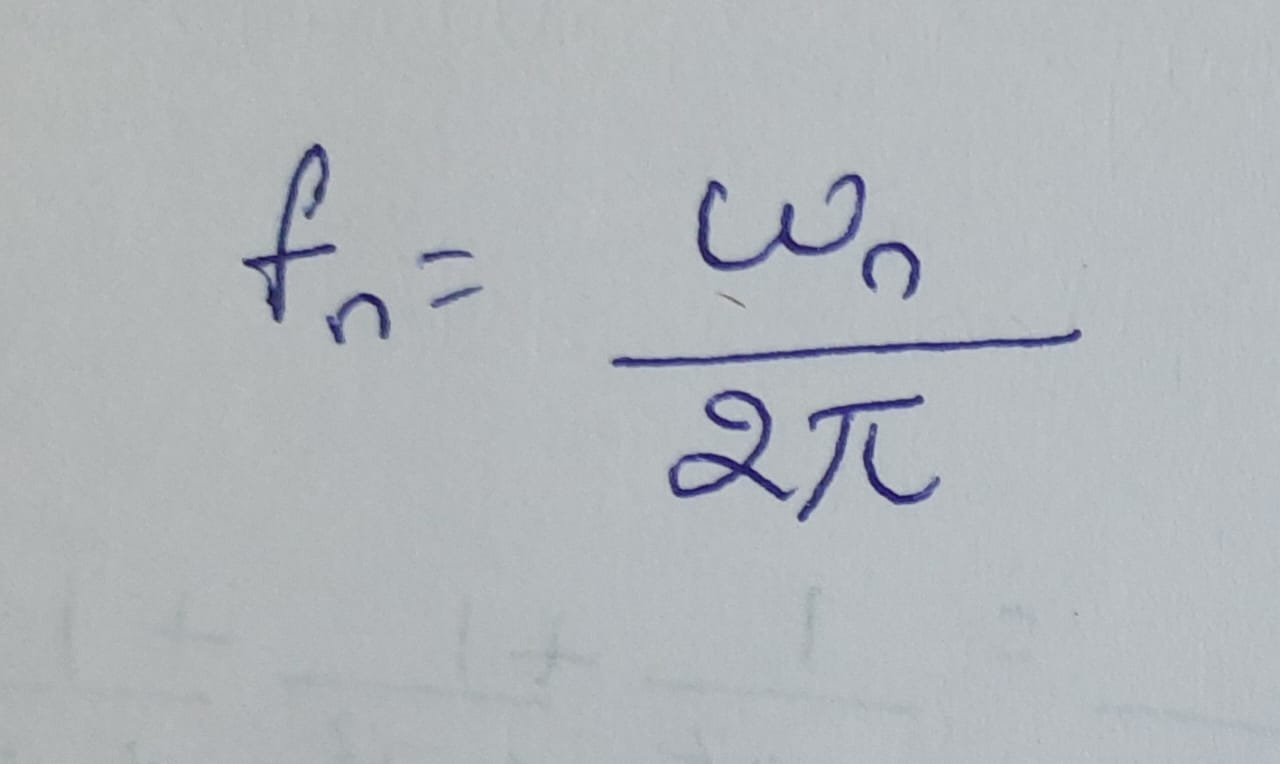 fₙ = ωₙ / 2π